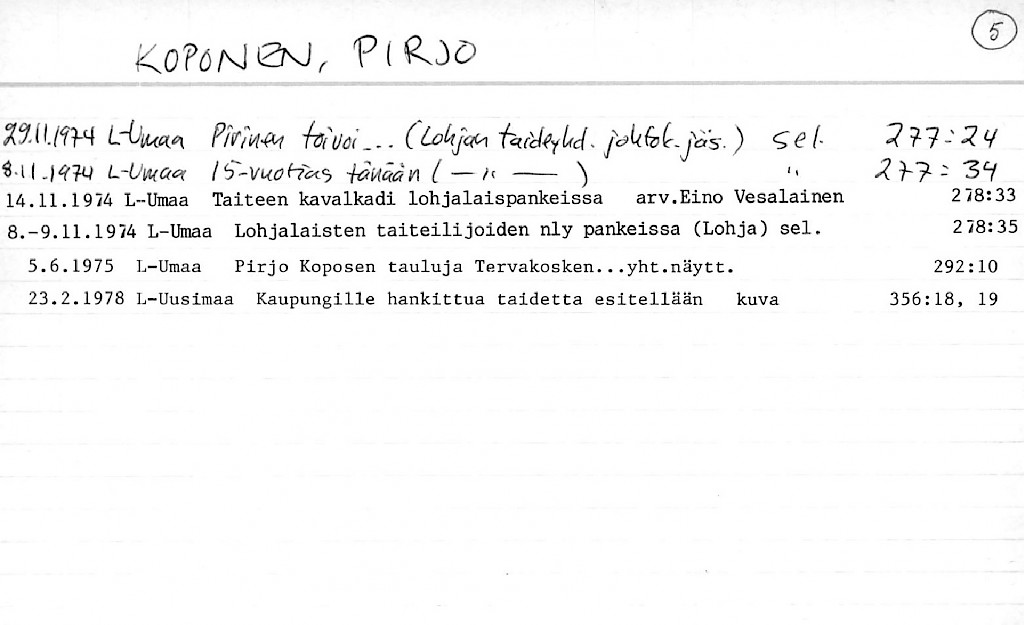 5
KOPONEN, PIRJO
29.11.1974 L-Umaa Pirinen toivoi... (Lohjan taideyhd. johtok. jäs.) sel. 277:24
8.11.1974 L-Umaa 15-vuotias tänään ( — " — ) " 277:34
14.11.1974 L-Umaa Taiteen kavalkadi lohjalaispankeissa arv.Eino Vesalainen 278:33
8.-9.11.1974 L-Umaa Lohjalaisten taiteilijoiden nly pankeissa (Lohja) sel. 278:35
5.6.1975 L-Umaa Pirjo Koposen tauluja Tervakosken...yht.näytt. 292:10
23.2.1978 L-Uusimaa Kaupungille hankittua taidetta esitellään kuva 356:18, 19